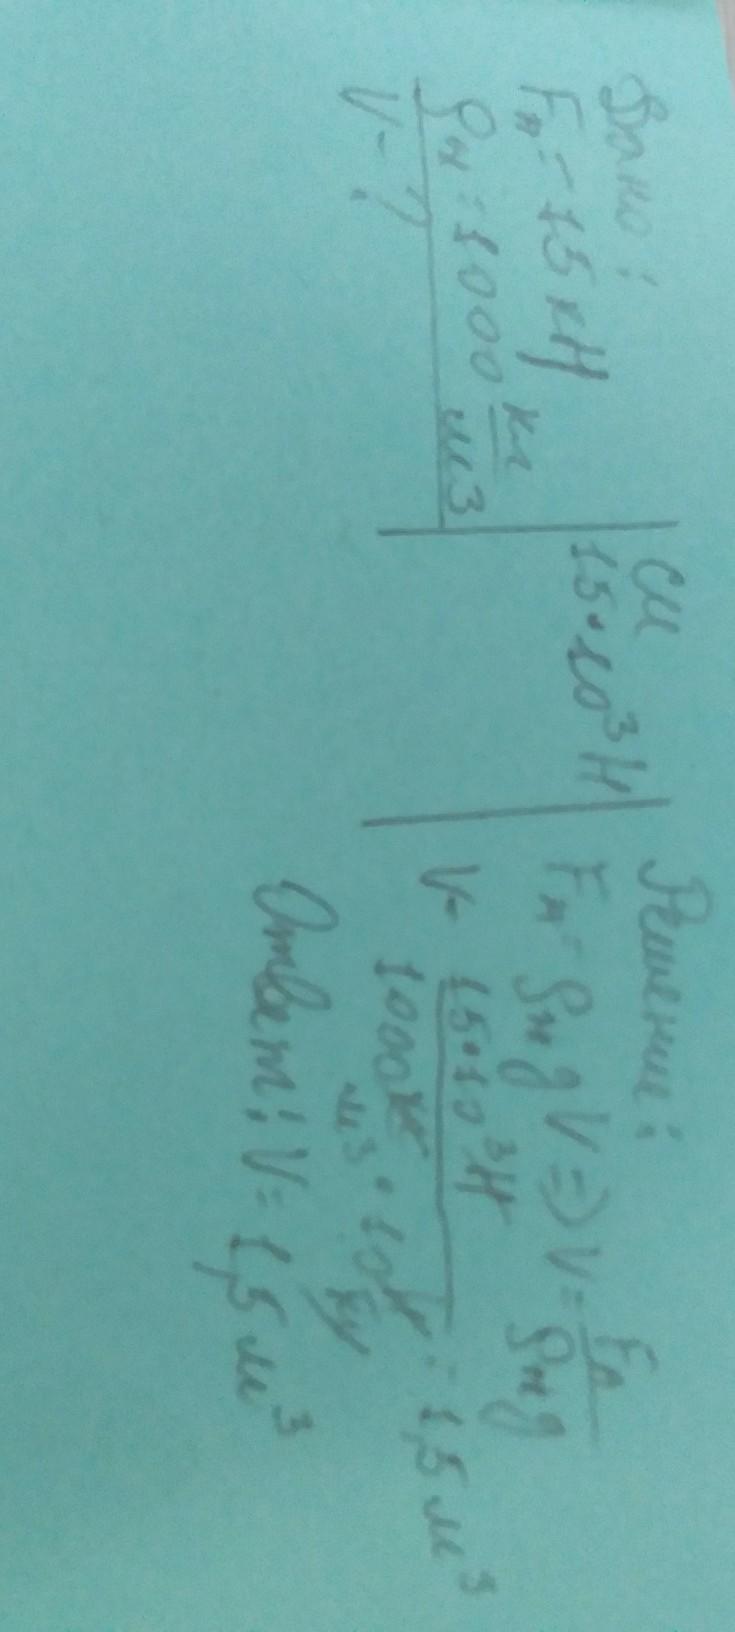 Дано:
Fₐ = 15 кН
ρж = 1000 кг/м³
V - ?
СИ
15 • 10³ Н
Решение:
Fₐ = ρж g V => V = Fₐ/ρж g
V = 15 • 10³ Н / 1000 кг/м³ • 10 Н/кг = 1,5 м³
Ответ: V = 1,5 м³